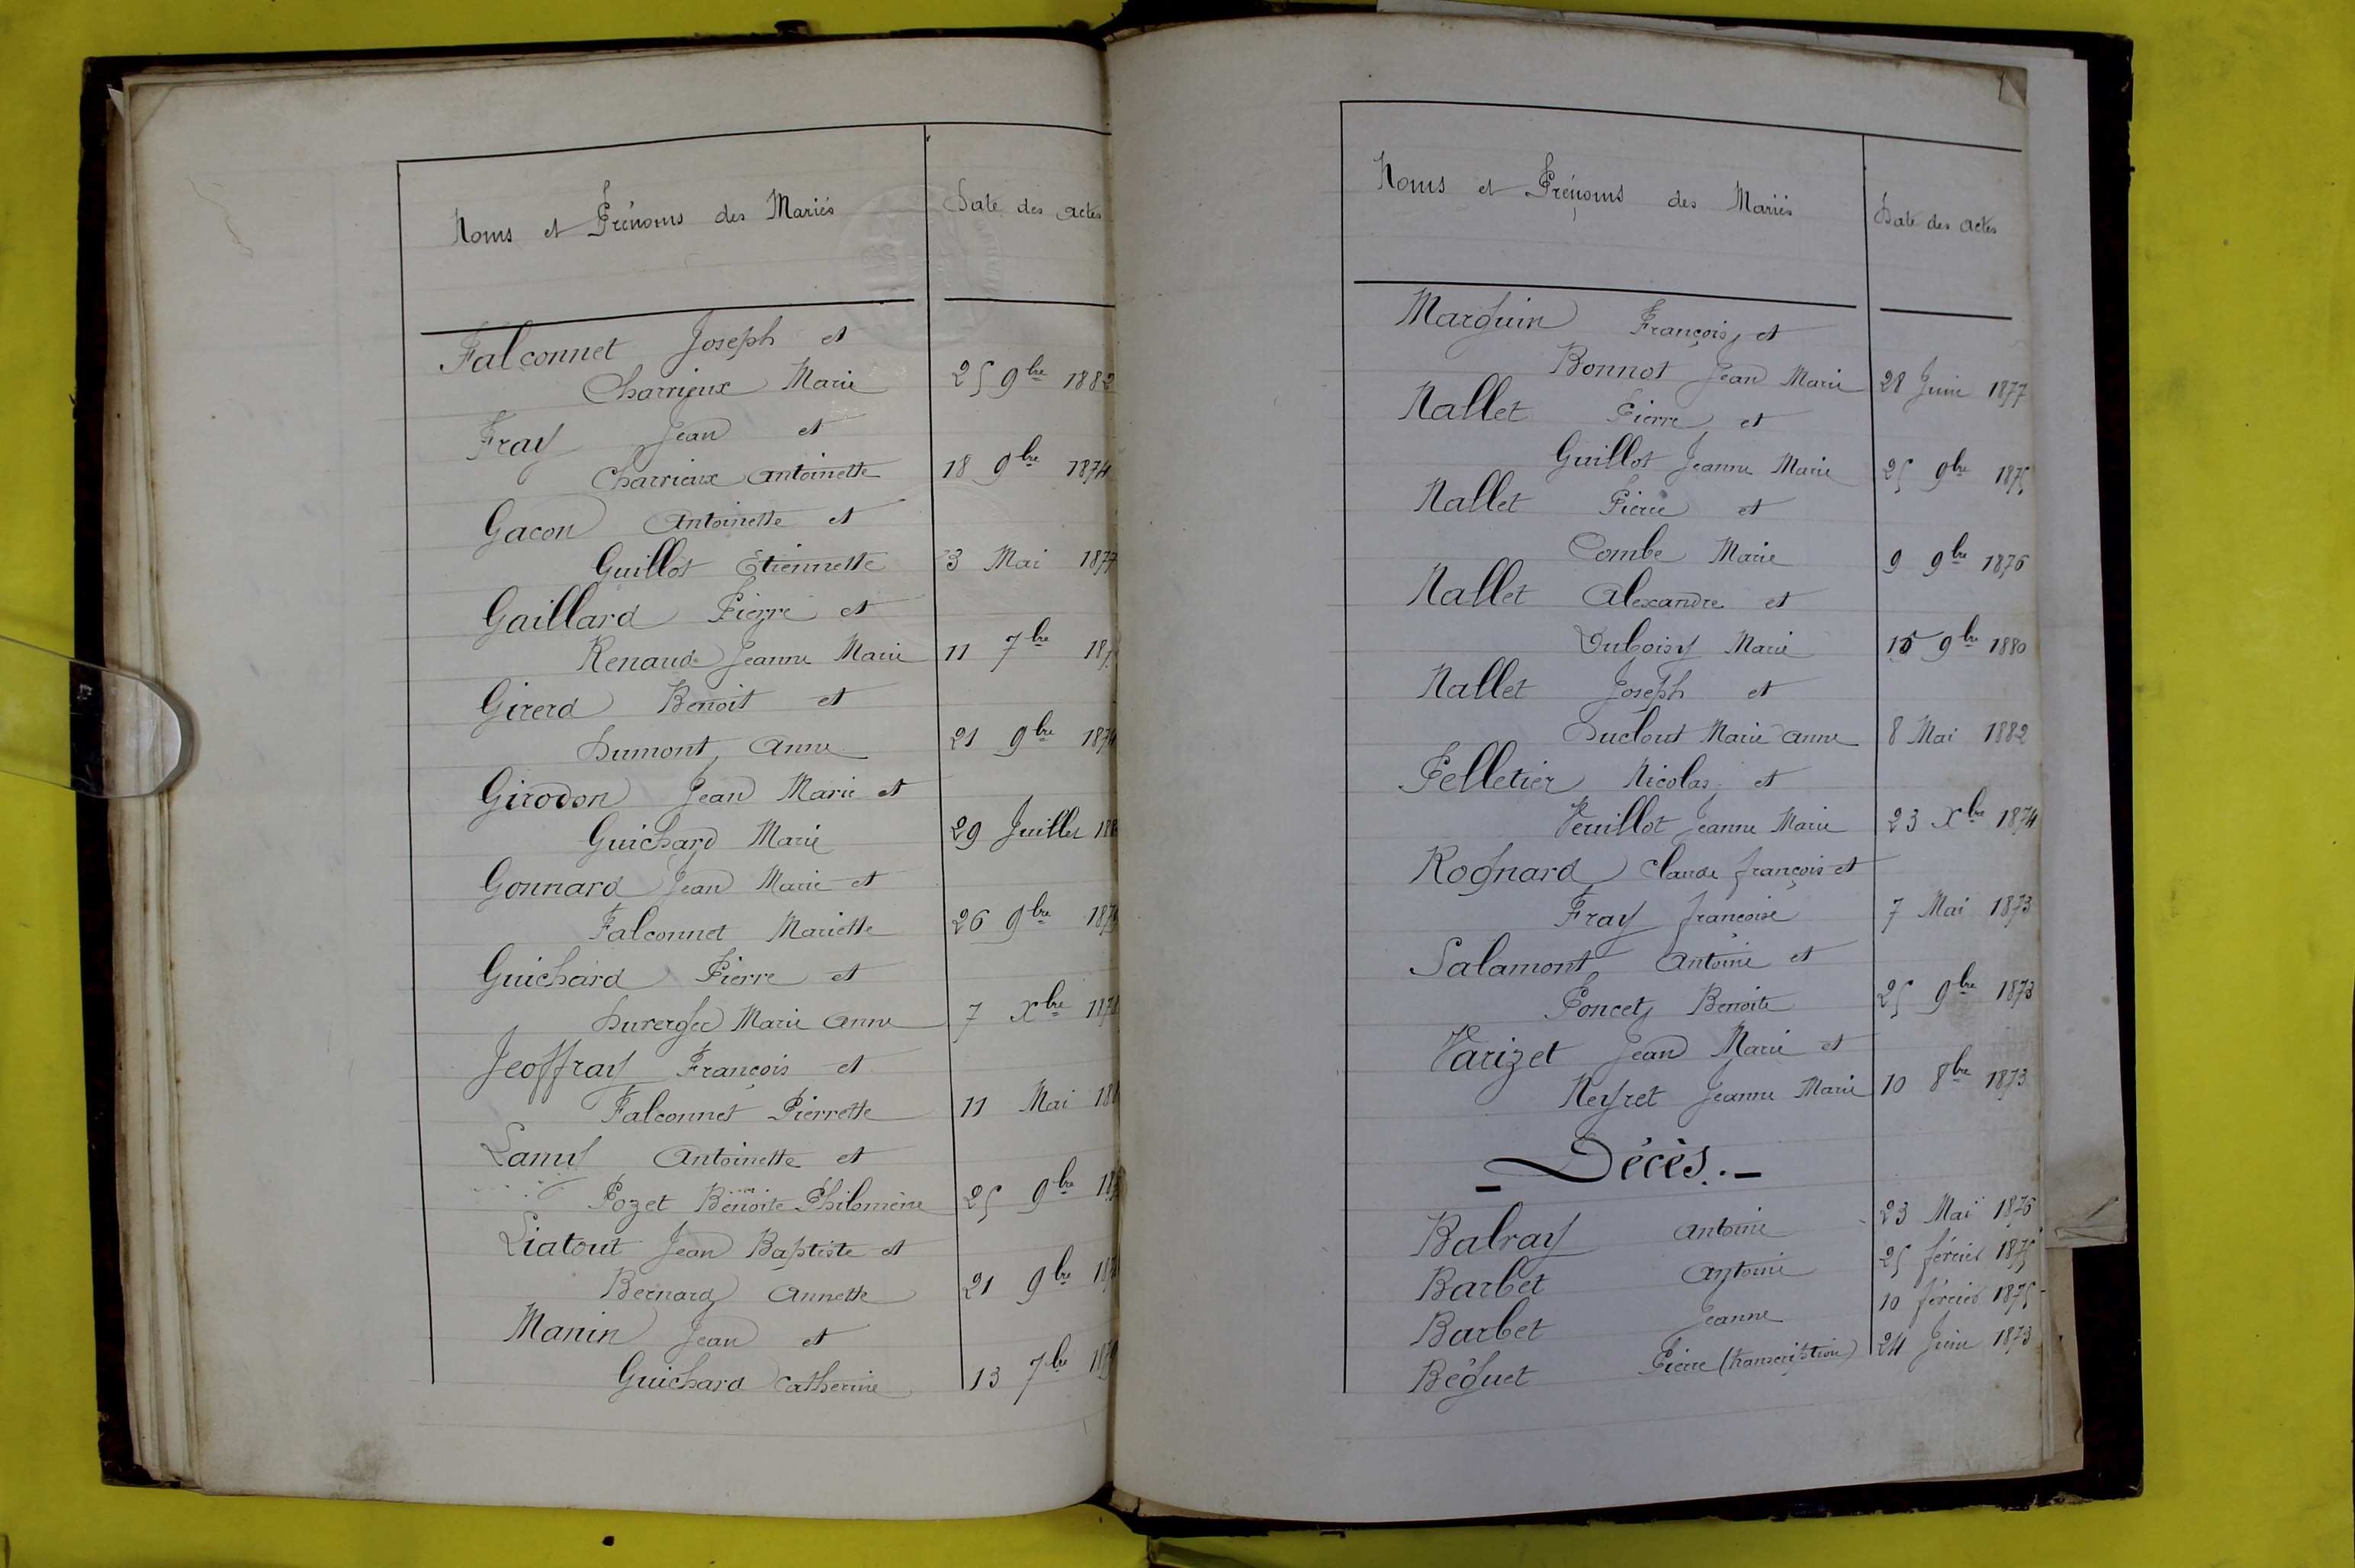 Noms et Prénoms des Mariés Date des actes
Falconnet Joseph et
Charrieux Marie 25 9bre 1882
Fray Jean et
Charrieux Antoinette 18 9bre 1874
Gacon Antoinette et
Guillot Etiennette 3 Mai 1877
Gaillard Pierre et
Renaud Jeanne Marie 11 7bre
Girerd Benoit et
Dumont Anne 21 9bre 1874
Girodon Jean Marie et
Guichard Marie 29 Juillet
Gonnard Jean Marie et
Falconnet Mariette 26 9bre
Guichard Pierre et
Duverger Marie Anne 7 Xbre
Jeoffray François et
Falconnet Pierrette 11 Mai
Lamy Antoinette et
Pozet Benoite Philomène 25 9bre
Liatout Jean Baptiste et
Bernard Annette 21 9bre
Manin Jean et
Guichard Catherine 13 7bre
Noms et Prénoms des Mariés Date des actes
Marguin François et
Bonnot Jean Marie 28 Juin 1877
Nallet Pierre et
Guillot Jeanne Marie 25 9bre 1875
Nallet Pierre et
Combe Marie 9 9bre 1876
Nallet Alexandre et
Duboisy Marie 15 9bre 1880
Nallet Joseph et
Duclout Marie Anne 8 Mai 1882
Pelletier Nicolas et
Veuillot Jeanne Marie 23 Xbre 1874
Rognard Claude françois et
Fray françoise 7 Mai 1873
Salamont Antoine et
Poncet Benoite 25 9bre 1873
Varizet Jean Marie et
Neyret Jeanne Marie 10 8bre 1873
- Décès. -
Balray Antoine 23 Mai 1876
Barbet Antoine 25 février 1875
Barbet Jeanne 10 février 1875
Béguet Pierre (transcription) 24 Juin 1873